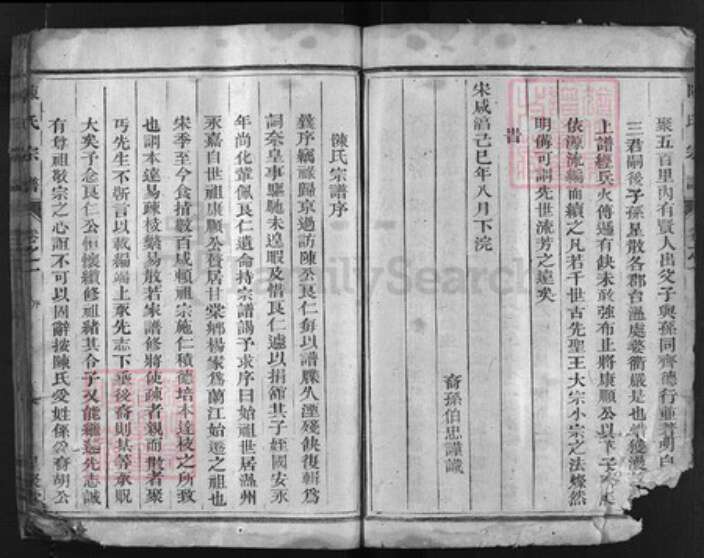 聚五百里內有賢人出父子與孫同齊德行並著明白
三君嗣後子孫星散各郡台溫處婺衢嚴是也
上譜經兵火傳遞有缺未敢強布止將康順公以下子
依源流編而續之凡若千世古先聖王大宗小宗之法燦然
明備可謂先世流芳之遠矣
旹
宋咸淳己巳年八月下浣
裔孫伯忠謹識
陳氏宗譜序
義序竊祿歸京過訪陳公良仁每以譜牒久湮殘缺復輯為
詞奈皇事驅馳未遑暇及惜良仁遽以捐館其子姪國安永
年尚化輩佩良仁遺命持宗譜謁予求序曰始祖世居溫州
永嘉自世祖康順公贅居甘棠鄉楊家為蘭江始遷之祖也
宋季至今食指數百咸賴祖宗施仁積德培本達枝之所致
也謂本遠易疎枝繁易散若家譜修將使疎者親而散者聚
丐先生不靳言以載編端上承先志下啟後裔則某等承貺
大矣予念良仁公恒懷續修祖緒其令子又能繼先志誠
有尊祖敬宗之心誼不可以固辭按陳氏受姓係裔胡公
陳氏宗譜
FamilySearch